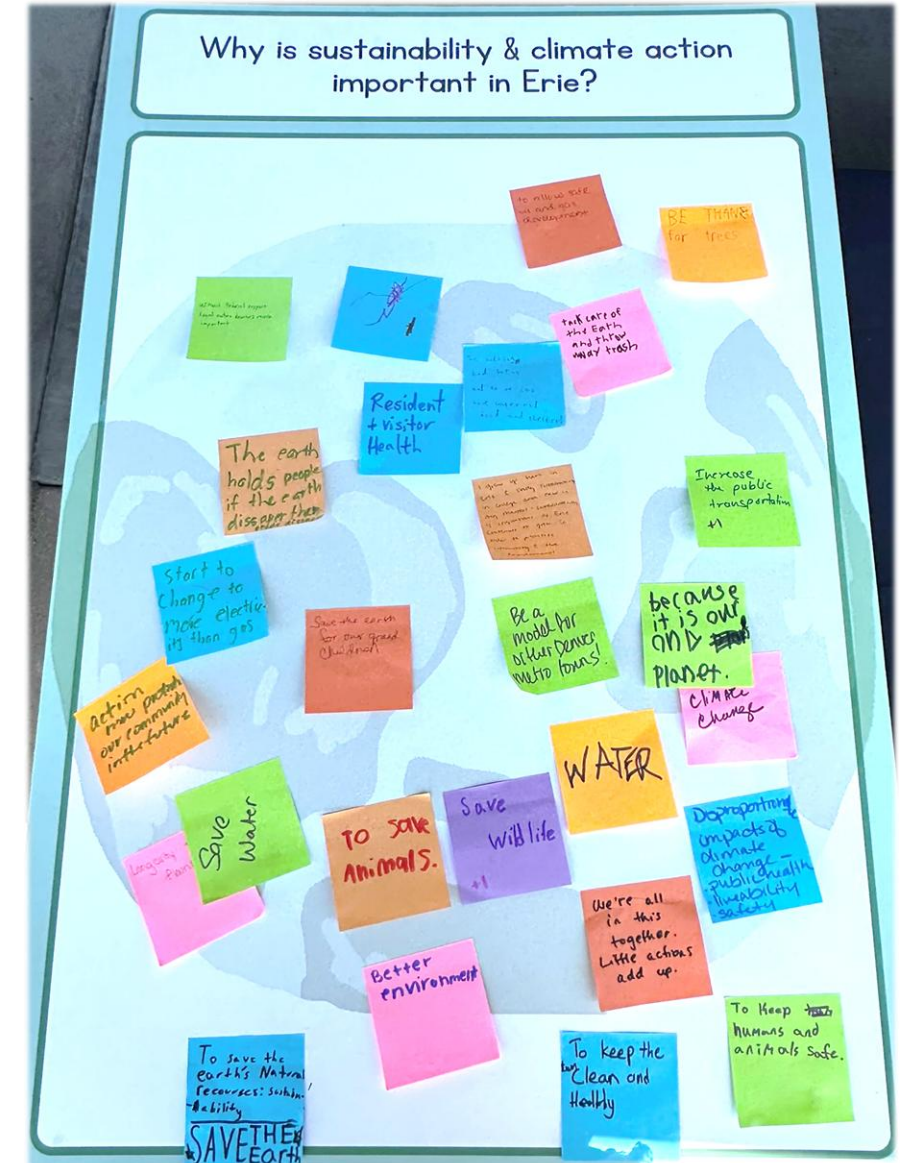 Why is sustainability & climate action
important in Erie?
to allow safe
oil and gas
development
BE THANK
for trees
without federal support
local action becomes more
important
take care of
the Earth
and throw
away trash
Resident
+ visitor
Health
The earth
holds people
if the earth
dissaper then
Increase
the public
transportation
+1
Start to
Change to
more electric
ity than gas
Save the earth
for our grand
children
Be a
model for
other Denver
metro towns!
because
it is our
planet.
Climate
Change
action
now protects
our community
in the future
WATER
Save
Water
Longevity
To save
Animals.
Save
Wildlife
+1
Disproportionate
impacts of
climate
change –
- public health
- liveability
- safety
We're all
in this
together.
Little actions
add up.
Better
environment
To keep
humans and
animals safe.
To save the
earth's Natural
recourses: sustain-
ability
SAVE THE
Earth
To keep the
Clean and
Healthy